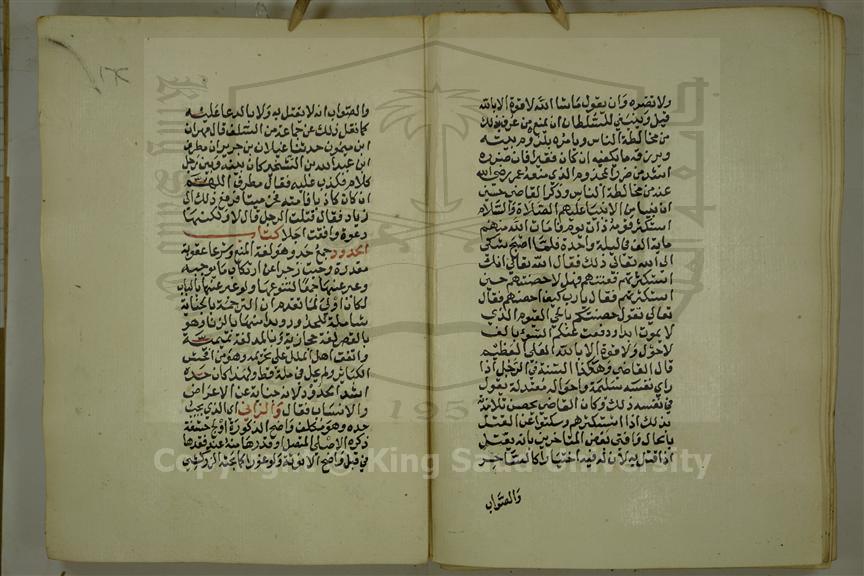 ولا تضره وان يقول ماشا الله لا قوة الا بالله
قيل وينبغي للسلطان ان يمنع من عرف بذلك
من مخالطة الناس ويامره بلزوم بيته
ويرزقه ما يكفيه ان كان فقيرا فان ضرره
اشد من ضرر المجذوم الذي منعه عمر رضي الله
عنه من مخالطة الناس وذكر القاضي حسين
ان نبيا من الانبيا عليهم الصلاة والسلام
استكثر قومه ذات يوم فامات الله منهم
ماية الف في ليلة واحدة فلما اصبح شكى
الى الله تعالى ذلك فقال الله تعالى انك
استكثرتهم فعنتهم فهل لا حصنتهم حين
استكثرتهم فقال يا رب كيف احصنهم فقال
تعالى تقول حصنتكم بالحي القيوم الذي
لا يموت ابدا ودفعت عنكم السوء بالف
لا حول ولا قوة الا بالله العلي العظيم
قال القاضي وهكذا السنة في الرجل اذا
راى نفسه سليمة واحواله معتدلة يقول
في نفسه ذلك وكان القاضي يحصن تلامذته
بذلك اذا استكثرهم وسكتوا عن القتل
بالحال وافتى بعض المتاخرين بانه يقتل
اذا قتل به لان له فيه اختيارا كالساحر
والصواب
والصواب انه لا يقتل به ولا بالدعا عليه
كما نقل ذلك عن جماعة من السلف قال مهران
ابن ميمون حدثنا غيلان بن جرير ان مطرف
ابن عبد الله بن الشخير كان بينه وبين رجل
كلام فكذب عليه فقال مطرف اللهم
ان كان كاذبا فامته فخر ميتا فرفع ذلك الى
زياد فقال قتلت الرجل قال لا ولكنها
دعوة وافقت اجلا كتاب
الحدود جمع حد وهو لغة المنع وشرعا عقوبة
مقدرة وجبت زجرا عن ارتكاب ما يوجبه
وعبر عنها جمعا لتنوعها ولو عبر عنها بالباب
لكان اولى لما تقدم ان الترجمة بالجناية
شاملة للحدود وبدا منها بالزنا وهو
بالقصر لغة حجازية وبالمد لغة تميمية
واتفق اهل الملل على تحريمه وهو من افحش
الكبائر ولم يحل في ملة قط ولهذا كان حده
اشد الحدود لانه جناية على الاعراض
والانساب فقال والزاني اي الذي يجب
حده وهو مكلف واضح الذكورة اولج حشفة
ذكره الاصلي المتصل او قدرها منه عند فقدها
في قبل واضح الانوثة ولو غورا كما بحثه الزركشي
Copyright © King Saud University
1957